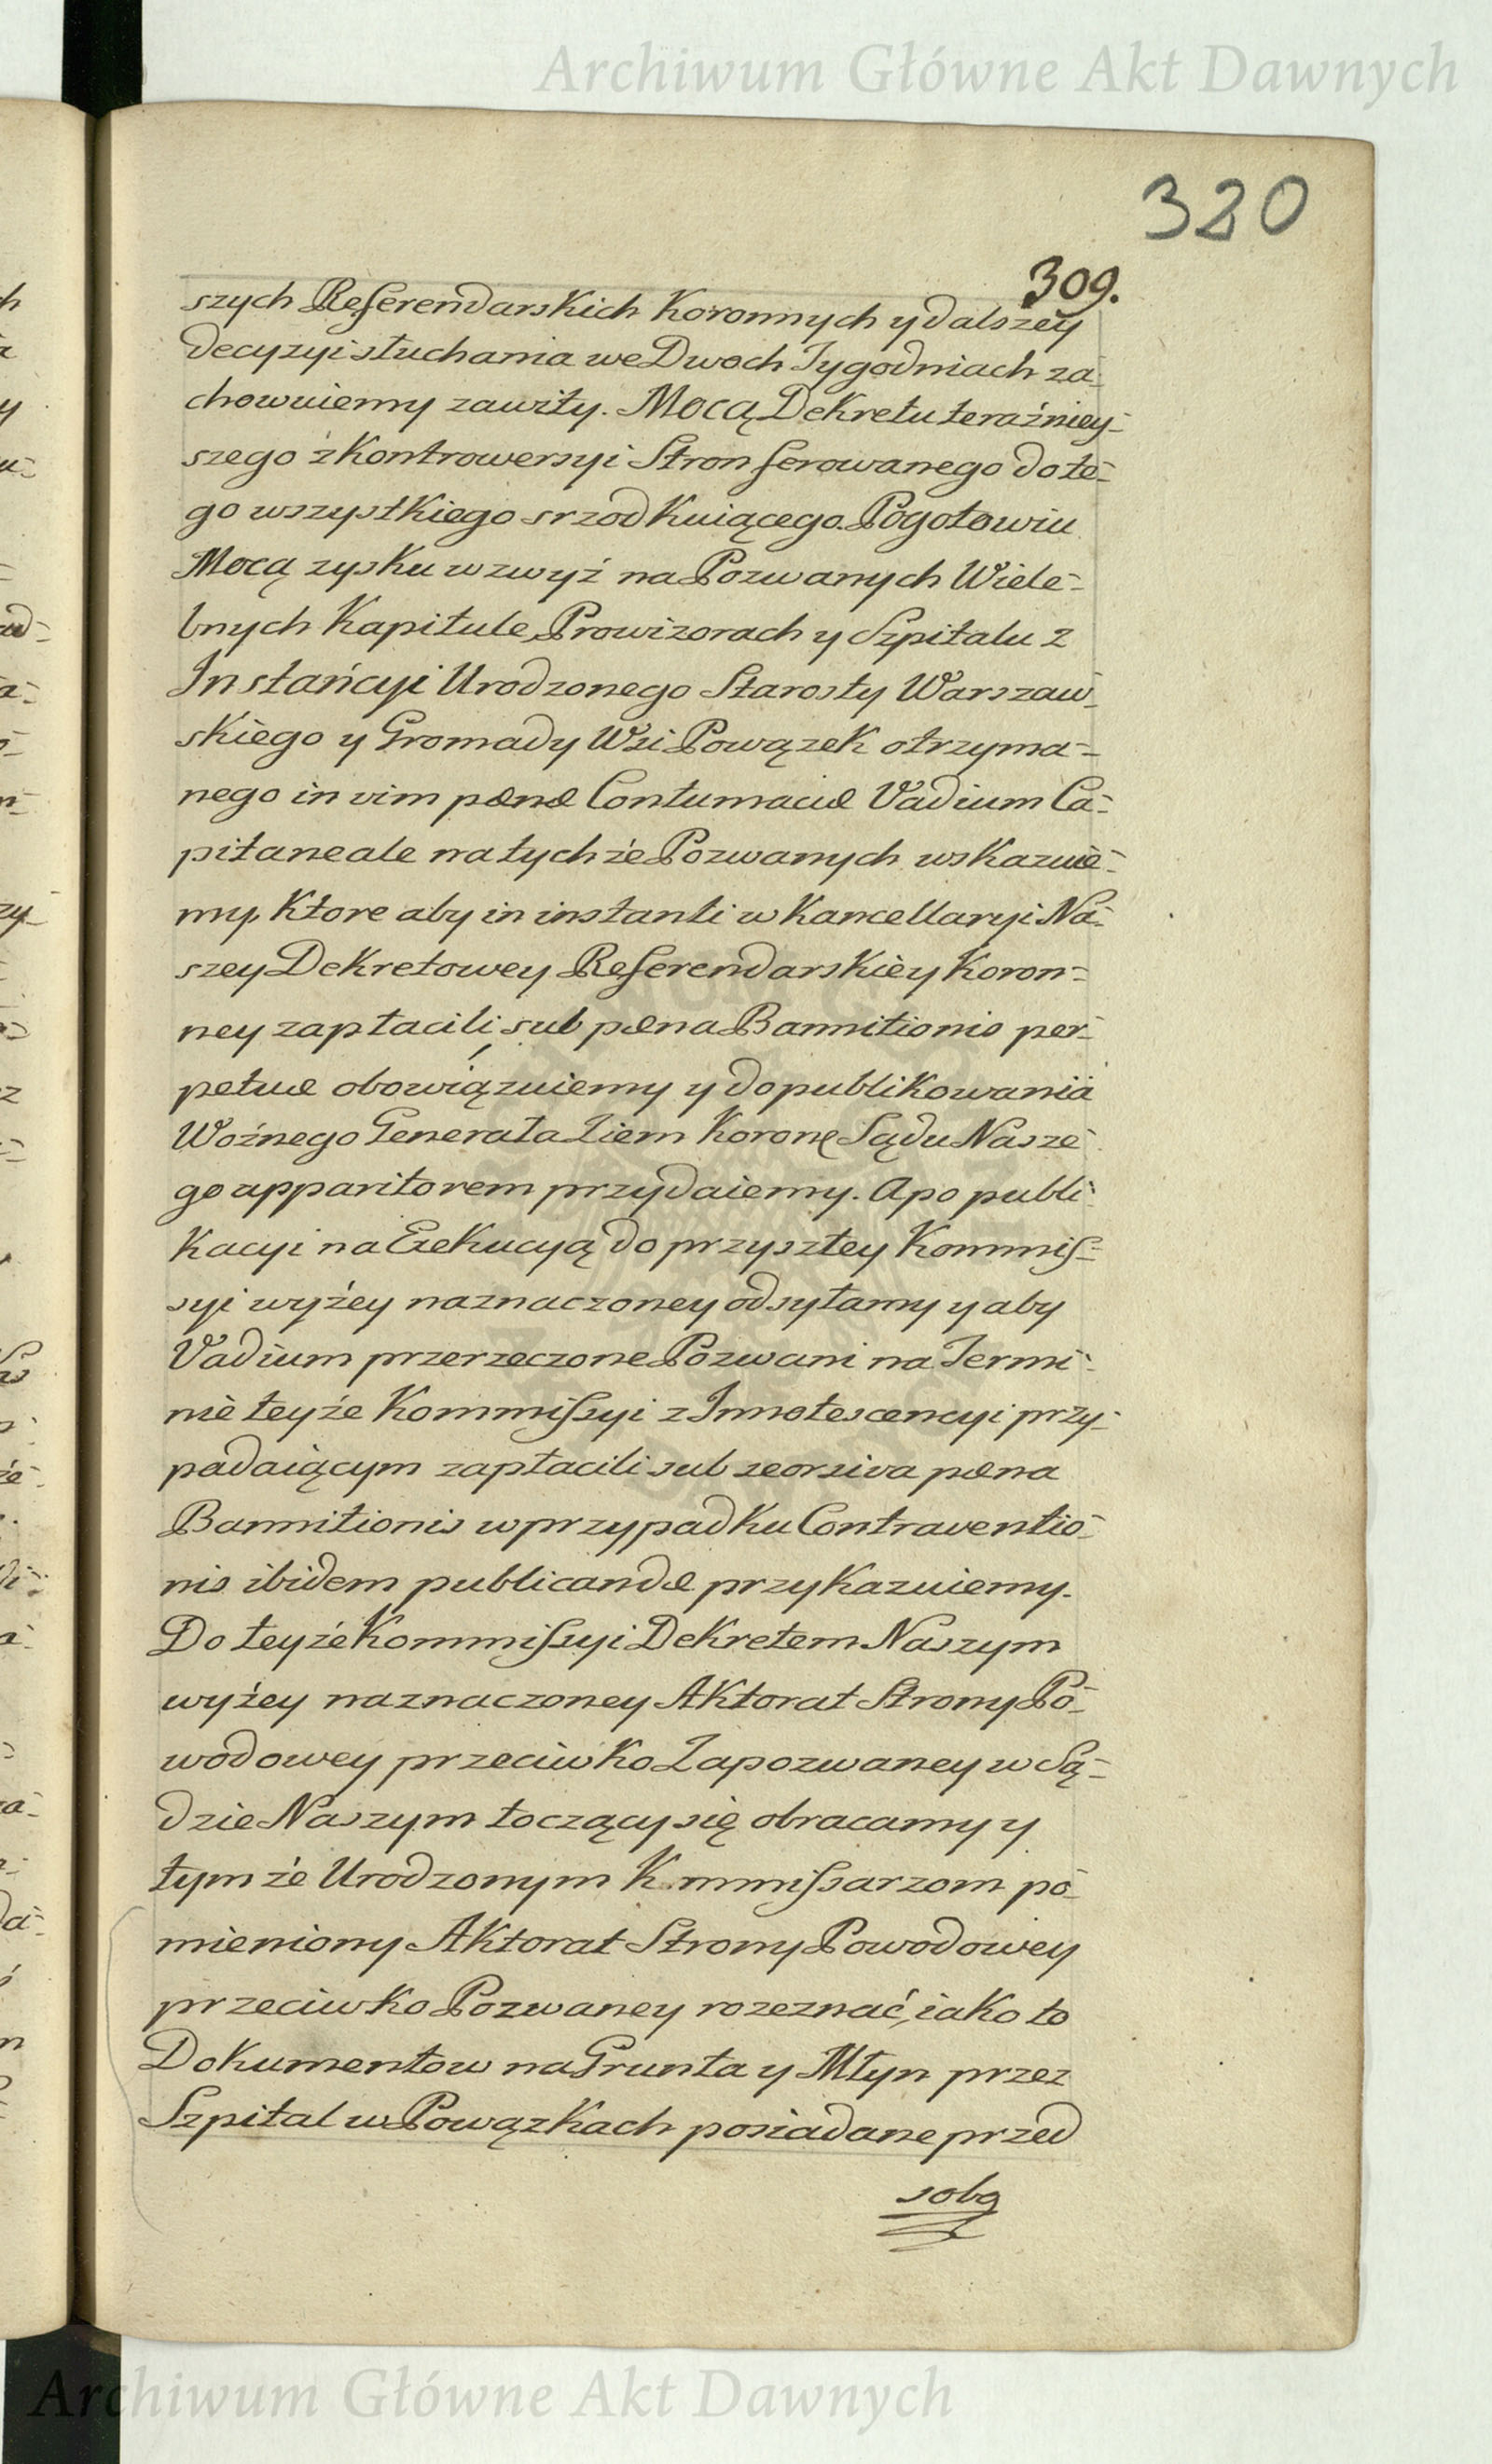 Archiwum Główne Akt Dawnych
320
309.
szych Referendarskich Koronnych y dalszey
decyzyi słuchania we Dwoch Tygodniach za-
chowuiemy zawity. Mocą Dekretu teraźniey-
szego z Kontrowersyi Stron ferowanego do te-
go wszystkiego srzodkuiącego. Pogotowiu
Mocą zysku wzwyż na Pozwanych Wiele-
bnych Kapitule, Prowizorach y Szpitalu z
Instańcyi Urodzonego Starosty Warszaw-
skiego y Gromady Wsi Powązek otrzyma-
nego in vim pænæ Contumaciæ Vadium Ca-
pitaneale na tychże Pozwanych wskazuie-
my, Ktore aby in instanti w Kancellaryi Na-
szey Dekretowey Referendarskiey Koron-
ney zapłacili, sub pæna Bannitionis per-
petuæ obowiązuiemy y do publikowania
Woźnego Generała Ziem Koronę Sądu Nasze-
go apparitorem przydaiemy. A po publi-
kacyi na Exekucyą do przyszłey Kommis-
syi wyżey naznaczoney odsyłamy y aby
Vadium przerzeczone Pozwani na Termi-
nie teyże Kommissyi z Innotescencyi przy-
padaiącym zapłacili sub seorsiva pæna
Bannitionis w przypadku Contraventio-
nis ibidem publicandæ przykazuiemy.
Do teyże Kommissyi Dekretem Naszym
wyżey naznaczoney Aktorat Strony Po-
wodowey przeciwko Zapozwaney w Są-
dzie Naszym toczący się obracamy y
tymże Urodzonym K mmissarzom po-
mieniony Aktorat Strony Powodowey
przeciwko Pozwaney rozeznać, iako to
Dokumentow na Grunta y Młyn przez
Szpital w Powązkach posiadane przed
sobą
Archiwum Główne Akt Dawnych